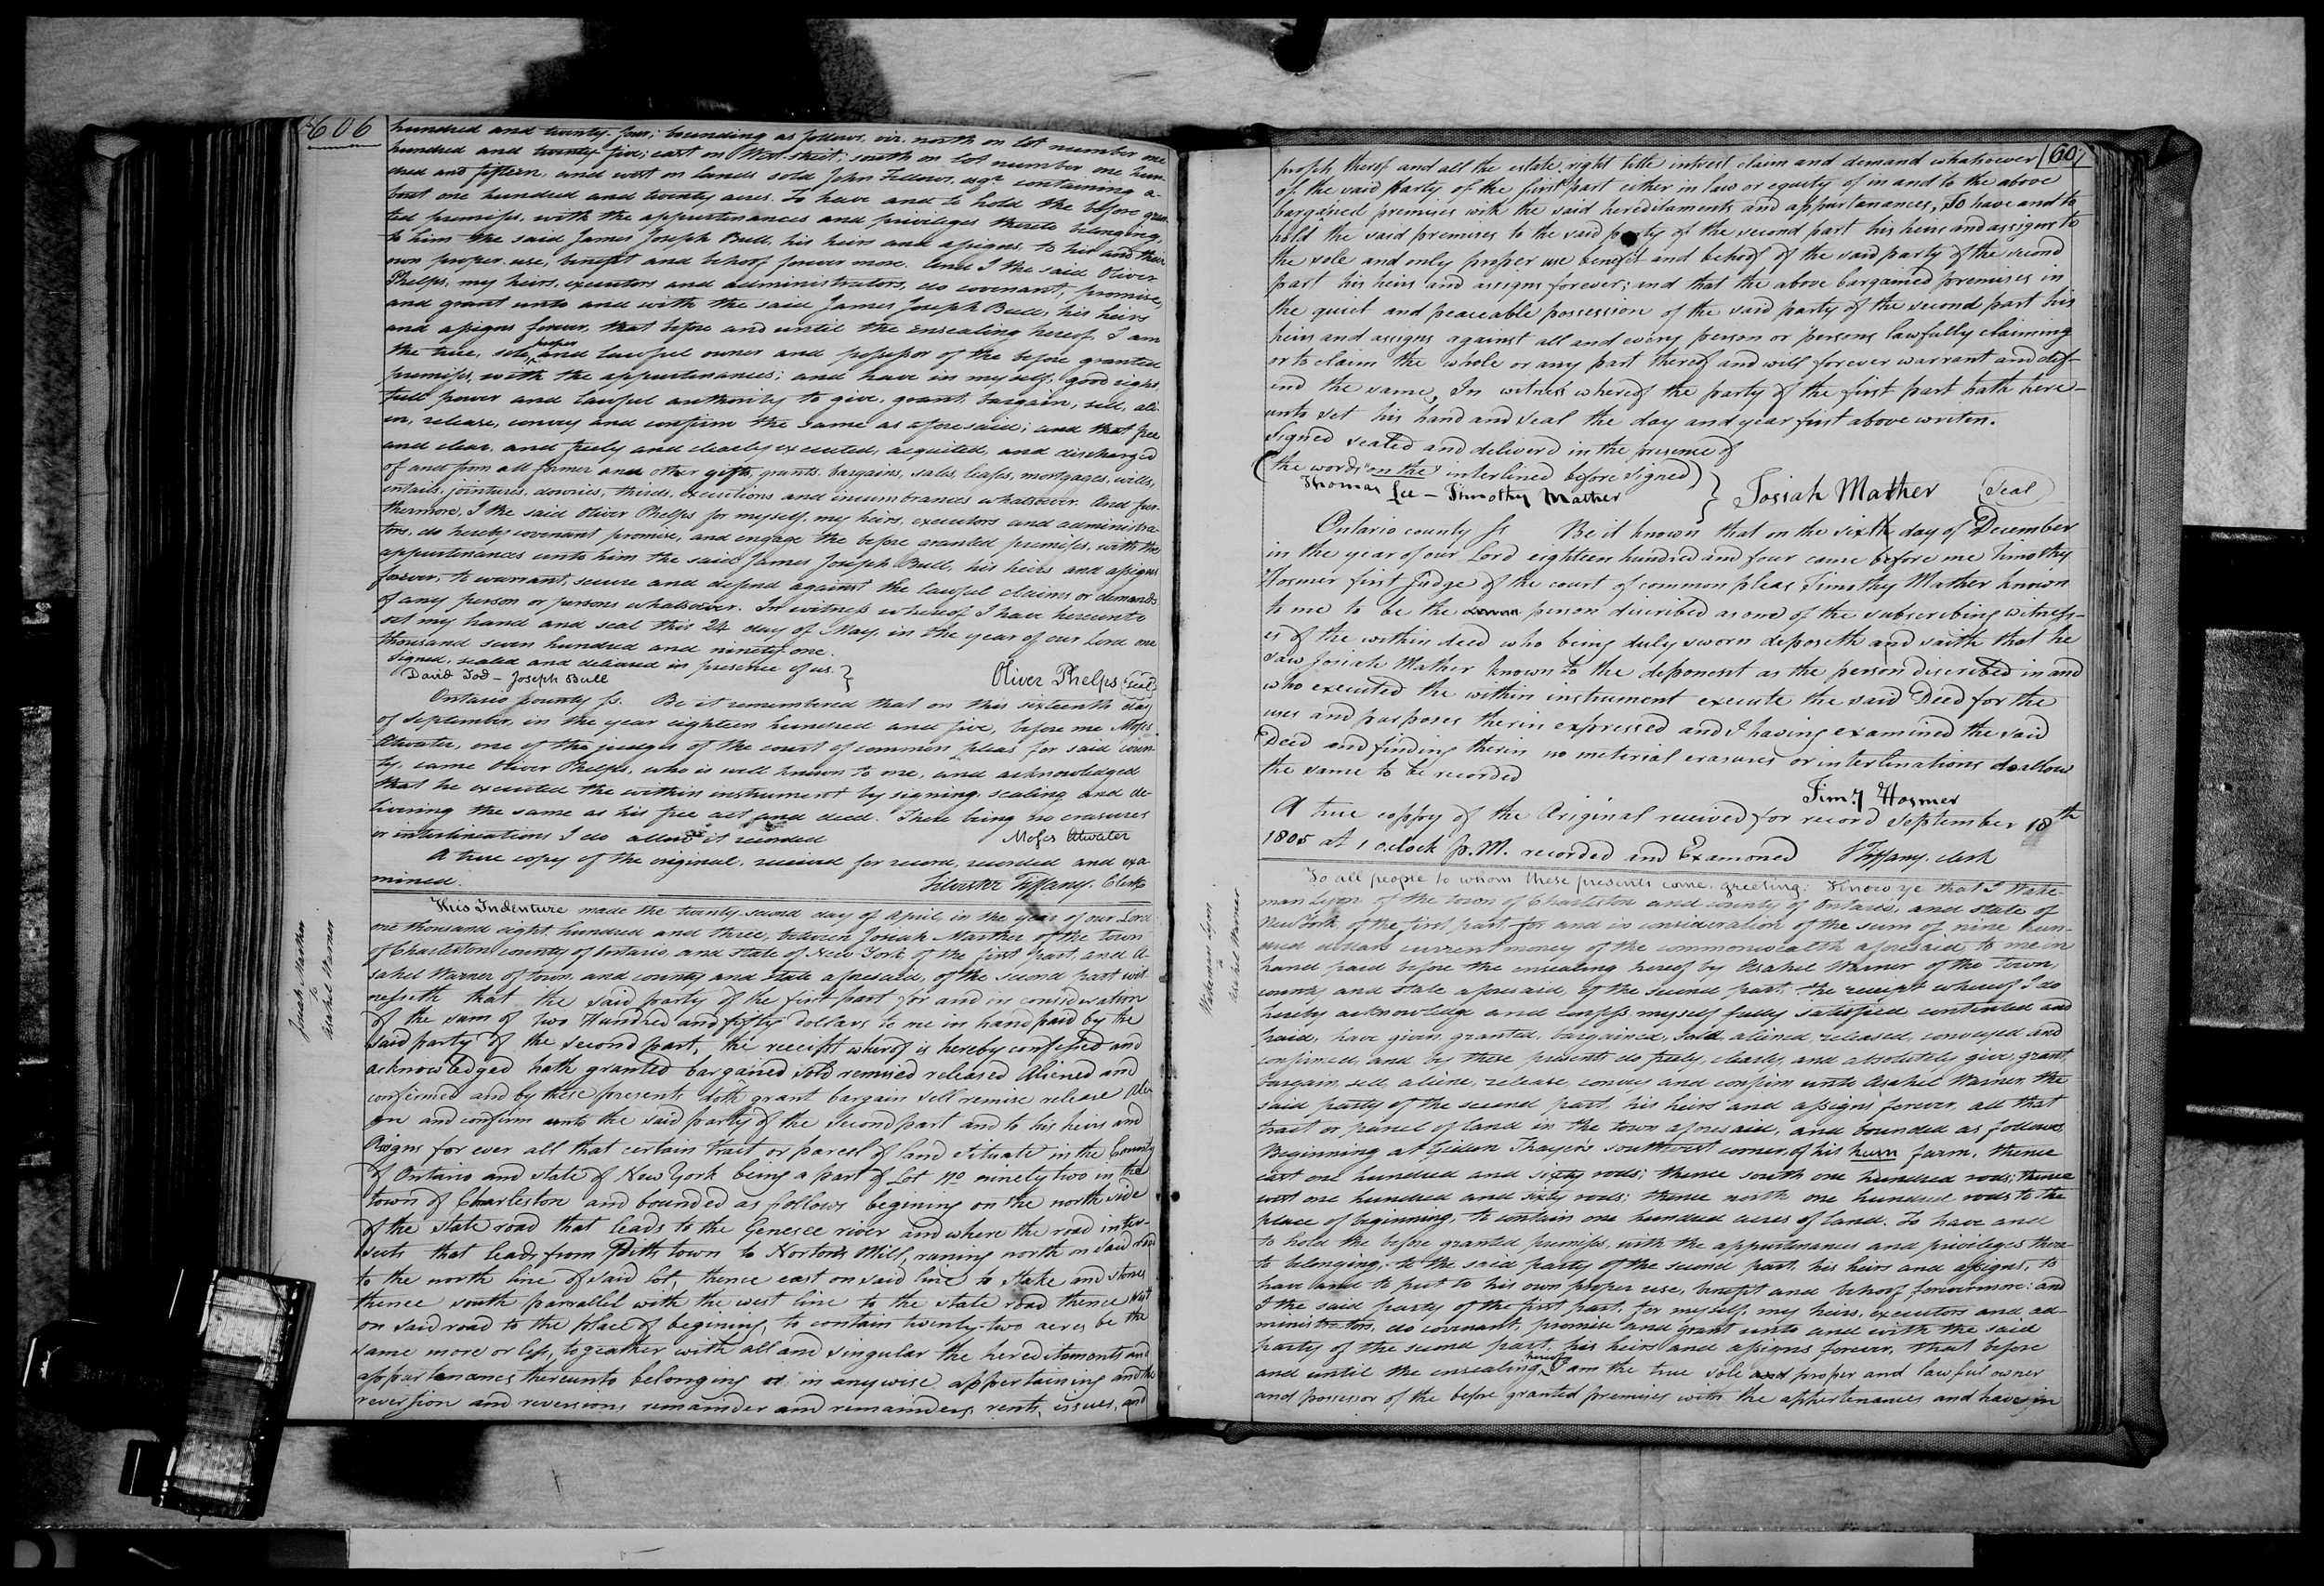 606
hundred and twenty-four; bounding as follows, viz. north on lot number one
hundred and twenty five; east on West street; south on lot number one hun-
dred and fifteen, and west on lands sold John Fellows, esqr. containing a-
bout one hundred and twenty acres. To have and to hold the before gran-
ted premises, with the appurtenances and privileges thereto belonging,
to him the said James Joseph Bull, his heirs and assigns, to his and their
own proper use, benefit and behoof forever more. And I the said Oliver
Phelps, my heirs, executors and administrators, do covenant, promise,
and grant unto and with the said James Joseph Bull, his heirs
and assigns forever, that before and until the ensealing hereof, I am
the true, sole, proper and lawful owner and possessor of the before granted
premises, with the appurtenances; and have in myself, good right,
full power and lawful authority to give, grant, bargain, sell, ali-
en, release, convey and confirm the same as aforesaid; and that free
and clear, and freely and clearly executed, acquited, and discharged
of and from all former and other gifts, grants, bargains, sales, leases, mortgages, wills,
entails, jointures, dowries, thirds, executions and incumbrances whatsoever. And fur-
thermore, I the said Oliver Phelps for myself, my heirs, executors and administra-
tors, do hereby covenant promise, and engage the before granted premises, with the
appurtenances unto him the said James Joseph Bull, his heirs and assigns
forever, to warrant, secure and defend against the lawful claims or demands
of any person or persons whatsoever. In witness whereof I have hereunto
set my hand and seal this 24 day of May, in the year of our Lord one
thousand seven hundred and ninety one.
Signed, sealed and delivered in presence of us. }
David Tod - Joseph Bull Oliver Phelps (seal)
Ontario county ss. Be it remembered that on this sixteenth day
of September, in the year eighteen hundred and five, before me Moses
Atwater, one of the judges of the court of common pleas for said coun-
ty, came Oliver Phelps, who is well known to me, and acknowledged
that he executed the within instrument by signing, sealing and de-
livering the same as his free act and deed. There being no erasures
or interlineations I do allow it recorded Moses Atwater
A true copy of the original, received for record, recorded and exa
mined. Silvester Tiffany. Clerk
Josiah Mather
to
Asahel Warner
This Indenture made the twenty second day of April in the year of our Lord
one thousand eight hundred and three, between Josiah Marther of the town
of Charleston county of Ontario and state of New York of the first part, and A-
sahel Warner of town, and county and state aforesaid, of the second part wit-
nesseth that the said party of the first part for and in consideration
of the sum of two Hundred and fifty dollars to me in hand paid by the
said party of the second part, the receipt wherof is hereby confessed and
acknowledged hath granted bargained sold remised released Aliened and
confirmed and by these presents doth grant bargain sell remise release Ali
en and confirm unto the said party of the second part and to his heirs and
Assigns for ever all that certain trait or parcel of land situate in the County
of Ontario and state of New York being a part of Lot No ninety two in the
town of Charleston and bounded as follows begining on the north side
of the state road that leads to the Genesee river and where the road inter-
sects that leads from Pitts town to Nortons Mill, runing north on said road
to the north line of said lot, thence east on said line to stake and stones
thence south parrallel with the west line to the state road thence West
on said road to the place of begining, to contain twenty-two acres be the
same more or less, togeather with all and singular the hereditaments and
appurtenances thereunto belonging or in anywise appertaining and the
reversion and reversions remainder and remainders, rents, issues, and
607
profits thereof and all the estate right title intrest claim and demand whatsoever
of the said party of the first part either in law or equity of in and to the above
bargained premises with the said hereditaments and appurtanances, To have and to
hold the said premises to the said party of the second part his heirs and assigns to
the sole and only proper use benefit and behoof of the said party of the second
part his heirs and assigns forever; and that the above bargained premises in
the quiet and peaceable possession of the said party of the second part his
heirs and assigns against all and every person or persons lawfully claiming
or to claim the whole or any part thereof and will forever warrant and def-
end the same, In witness whereof the party of the first part hath here-
unto set his hand and seal the day and year first above writen.
Signed sealed and deliverd in the presence of
(the words "on the" interlined before signed)
Thomas Lee - Timothy Mather } Josiah Mather (Seal)
Ontario county ss Be it known that on the sixth day of December
in the year of our Lord eighteen hundred and four came before me Timothy
Hosmer first Judge of the court of common pleas Timothy Mather known
to me to be the person discribed as one of the subscribing witness-
es of the within deed who being duly sworn deposeth and saith that he
saw Josiah Mather known to the deponent as the person discribed in and
who executed the within instrument execute the said Deed for the
uses and purposes therin expressed and I having examined the said
Deed and finding therin no meterial erasures or interlinations do allow
the same to be recorded
Timy Hosmer
A true coppy of the Original received for record September 18th
1805 at 1 oclock P.M. recorded and Examoned S Tiffany. clerk
Waterman Lyon
to
Asahel Warner
To all people to whom these presents come, greeting: Know ye that I Water
man Lyon of the town of Charleston and county of Ontario, and state of
New York of the first part for and in consideration of the sum of nine hun-
dred dollars current money of the commonwealth aforesaid to me in
hand paid before the ensealing hereof by Asahel Warner of the town,
county and state aforesaid, of the second part, the receipt whereof I do
hereby acknowledge and confess myself fully satisfied contented and
paid, have given, granted, bargained, sold, aliened, released, conveyed and
confirmed, and by these presents do freely, clearly, and absolutely give, grant,
bargain, sell, aliene, release, convey and confirm unto Asahel Warner, the
said party of the second part, his heirs and assigns forever, all that
tract or parcel of land in the town aforesaid, and bounded as follows,
Beginning at Gideon Thayer's southwest corner of his farm, thence
east one hundred and sixty rods; thence south one hundred rods; thence
west one hundred and sixty rods; thence north one hundred rods to the
place of beginning, to contain one hundred acres of land. To have and
to hold the before granted premises, with the appurtenances and privileges there-
to belonging, to the said party of the second part, his heirs and assigns, to
have and to put to his own proper use, benefit and behoof forevermore: and
I the said party of the first part, for myself, my heirs, executors and ad-
ministrators, do covenant, promise and grant unto and with the said
party of the second part, his heirs and assigns forever, that before
and until the ensealing hereof I am the true sole and proper and lawful owner
and possessor of the before granted premises with the appertenances and have in